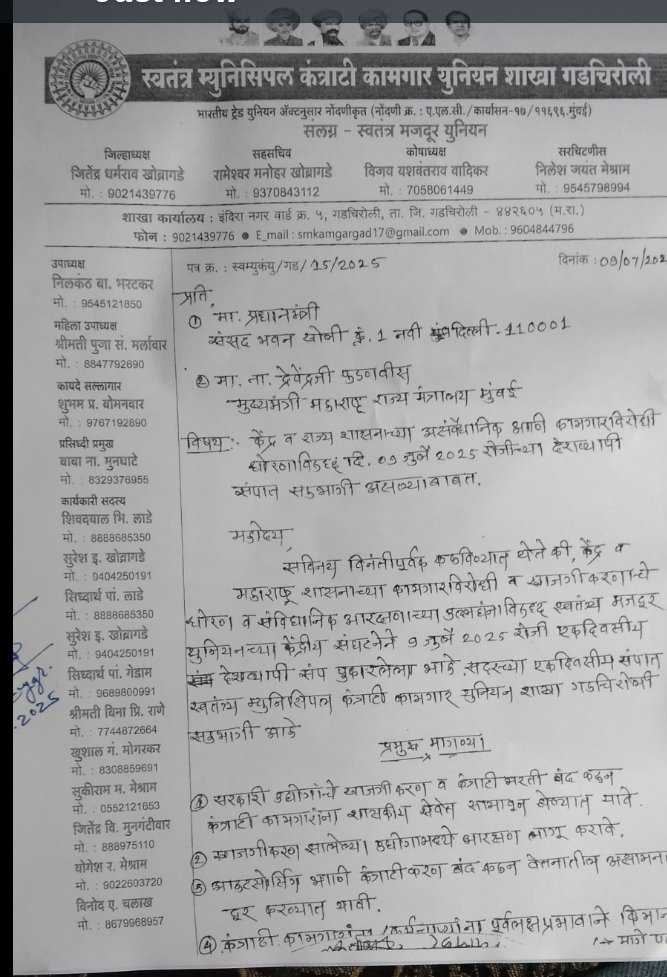 Just now
स्वतंत्र म्युनिसिपल कंत्राटी कामगार युनियन शाखा गडचिरोली
भारतीय ट्रेड युनियन ॲक्टनुसार नोंदणीकृत (नोंदणी क्र. : ए.एल.सी./कार्यासन-१७/११६९६,मुंबई)
संलग्न - स्वतंत्र मजदूर युनियन
जिल्हाध्यक्ष
जितेंद्र धर्मराव खोब्रागडे
मो. : 9021439776
सहसचिव
रामेश्वर मनोहर खोब्रागडे
मो. : 9370843112
कोषाध्यक्ष
विजय यशवंतराव वादिकर
मो. : 7058061449
सरचिटणीस
निलेश जयंत मेश्राम
मो. : 9545798994
शाखा कार्यालय : इंदिरा नगर वार्ड क्र. ५, गडचिरोली, ता. जि. गडचिरोली - ४४२६०५ (म.रा.)
फोन : 9021439776 ● E_mail : smkamgargad17@gmail.com ● Mob. : 9604844796
उपाध्यक्ष
निलकंठ बा. भरटकर
मो. : 9545121850
महिला उपाध्यक्ष
श्रीमती पुजा सं. मर्लावार
मो. : 8847792690
कायदे सल्लागार
शुभम प्र. बोमनवार
मो. : 9767192890
प्रसिध्दी प्रमुख
बाबा ना. मुनघाटे
मो. : 8329376955
कार्यकारी सदस्य
शिवदयाल भि. लाडे
मो. : 8888685350
सुरेश इ. खोब्रागडे
मो. : 9404250191
सिध्दार्थ पां. लाडे
मो. : 8888685350
सुरेश इ. खोब्रागडे
मो. : 9404250191
सिध्दार्थ पां. गेडाम
मो. : 9689800991
श्रीमती बिना प्रि. राणे
मो. : 7744872664
खुशाल गं. मोगरकर
मो. : 8308859691
सुकीराम म. मेश्राम
मो. : 0552121653
जितेंद्र वि. मुनगंटीवार
मो. : 888975110
योगेश र. मेश्राम
मो. : 9022603720
विनोद ए. चलाख
मो. : 8679968957
पत्र क्र. : स्वम्युकंयु/गड/15/2025
दिनांक : 09/07/202
प्रति,
① मा. प्रधानमंत्री
संसद भवन खोली क्रं. 1 नवी दिल्ली - 110001
② मा. ना. देवेंद्रजी फडणवीस
मुख्यमंत्री महाराष्ट्र राज्य मंत्रालय मुंबई
विषय :- केंद्र व राज्य शासनाच्या असंवैधानिक आणि कामगारविरोधी
धोरणाविरुद्ध दि. ०9 जुलै 2025 रोजीच्या देशव्यापी
संपात सहभागी असल्याबाबत.
महोदय,
सविनय विनंतीपूर्वक कळविण्यात येते की, केंद्र व
महाराष्ट्र शासनाच्या कामगारविरोधी व खाजगीकरणाचे
धोरण व संविधानिक आरक्षणाच्या उल्लंघनाविरुद्ध स्वतंत्र मजदूर
युनियनच्या केंद्रीय संघटनेने 9 जुलै 2025 रोजी एकदिवसीय
देशव्यापी संप पुकारलेला आहे. सदरच्या एकदिवसीय संपात
स्वतंत्र म्युनिसिपल कंत्राटी कामगार युनियन शाखा गडचिरोली
सहभागी आहे
प्रमुख मागण्या
① सरकारी उद्योगांचे खाजगीकरण व कंत्राटी भरती बंद करून
कंत्राटी कामगारांना शासकीय सेवेत सामावून घेण्यात यावे.
② खाजगीकरण झालेल्या उद्योगामध्ये आरक्षण लागू करावे.
③ आऊटसोर्सिंग आणि कंत्राटीकरण बंद करून वेतनातील असामन
दूर करण्यात यावी.
④ कंत्राटी कामगारांना पूर्वलक्षप्रभावाने किमान
2025